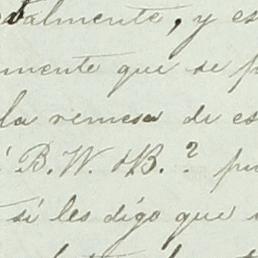 talmente, y es
mente que se p
la remesa de es
B. W. & B.ª pu
si les digo que